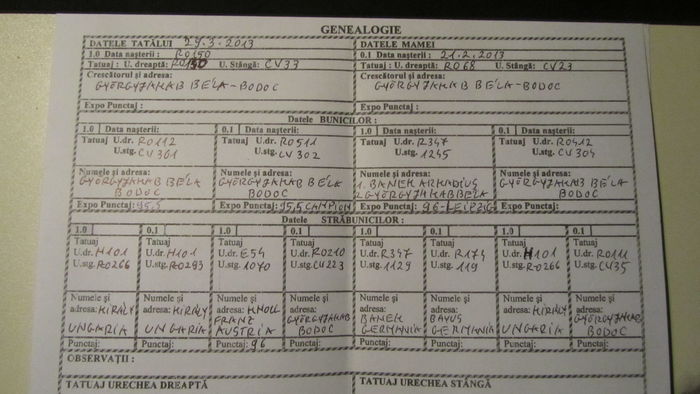 GENEALOGIE
DATELE TATĂLUI 29.3.2013
DATELE MAMEI
1.0 Data nașterii : RO150
0.1 Data nașterii: 21.2.2013
Tatuaj : U. dreaptă: RO150 U. Stângă: CV33
Tatuaj : U. dreaptă: RO68 U. Stângă: CV23
Crescătorul și adresa:
GYÖRGYJAKAB BÉLA-BODOC
Crescătorul și adresa:
GYÖRGYJAKAB BÉLA-BODOC
Expo Punctaj :
Expo Punctaj:
Datele BUNICILOR:
1.0 Data nașterii:
0.1 Data nașterii:
1.0 Data nașterii:
0.1 Data nașterii:
Tatuaj U.dr. RO112
U.stg. CV301
Tatuaj U.dr. RO511
U.stg. CV302
Tatuaj U.dr. R347
U.stg. 1245
Tatuaj U.dr. RO412
U.stg. CV304
Numele și adresa:
GYÖRGYJAKAB BÉLA
BODOC
Numele și adresa:
GYÖRGYJAKAB BÉLA
BODOC
Numele și adresa:
1. BANEK ARKADIUS
2 GYÖRGYJAKAB BÉLA
Numele și adresa:
GYÖRGYJAKAB BÉLA
BODOC
Expo Punctaj: 95,5
Expo Punctaj: 95,5 CAMPION
Expo Punctaj: 96-LEIPZIG
Expo Punctaj:
Datele STRĂBUNICILOR :
1.0
0.1
1.0
0.1
1.0
0.1
1.0
0.1
Tatuaj
U.dr. H101
U.stg. RO266
Tatuaj
U.dr. H101
U.stg. RO293
Tatuaj
U.dr. E54
U.stg. 1070
Tatuaj
U.dr. RO210
U.stg. CV223
Tatuaj
U.dr. R347
U.stg. 1129
Tatuaj
U.dr. R174
U.stg. 119
Tatuaj
U.dr. H101
U.stg. RO266
Tatuaj
U.dr. RO111
U.stg. CV35
Numele și
adresa: KIRÁLY
UNGARIA
Numele și
adresa: KIRÁLY
UNGARIA
Numele și
adresa: KNOLL
FRANZ
AUSTRIA
Numele și
adresa:
GYÖRGYJAKAB
BODOC
Numele și
adresa:
BANEK
GERMANIA
Numele și
adresa:
BAVUS
GERMANIA
Numele și
adresa: KIRÁLY
UNGARIA
Numele și
adresa:
GYÖRGYJAKAB
BODOC
Punctaj:
Punctaj:
Punctaj: 96
Punctaj:
Punctaj:
Punctaj:
Punctaj:
Punctaj:
OBSERVAȚII :
TATUAJ URECHEA DREAPTĂ
TATUAJ URECHEA STÂNGĂ